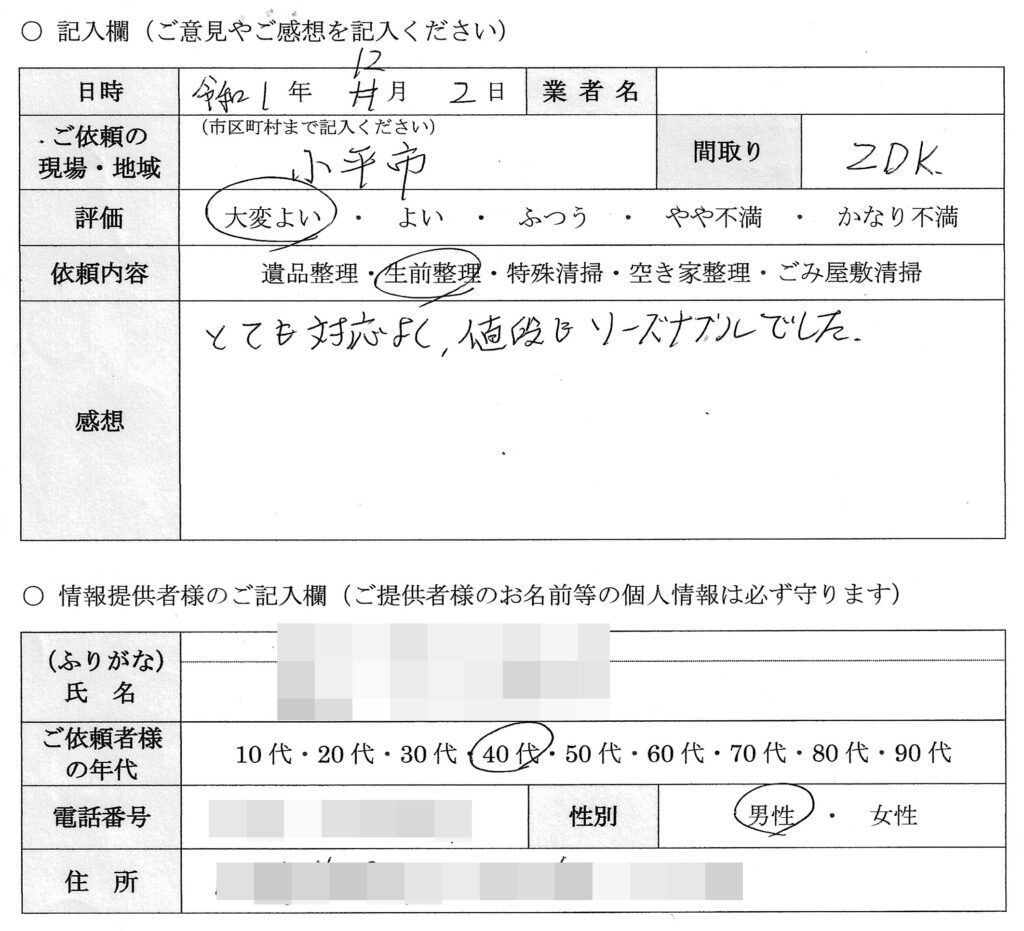 ○ 記入欄（ご意見やご感想を記入ください）
日時 令和1年 12月 2日 業者名
ご依頼の現場・地域 （市区町村まで記入ください） 小平市 間取り 2DK.
評価 大変よい ・ よい ・ ふつう ・ やや不満 ・ かなり不満
依頼内容 遺品整理・生前整理・特殊清掃・空き家整理・ごみ屋敷清掃
感想 とても対応よく，値段もリーズナブルでした．
○ 情報提供者様のご記入欄（ご提供者様のお名前等の個人情報は必ず守ります）
（ふりがな）
氏 名
ご依頼者様の年代 10代・20代・30代・40代・50代・60代・70代・80代・90代
電話番号 性別 男性 ・ 女性
住 所